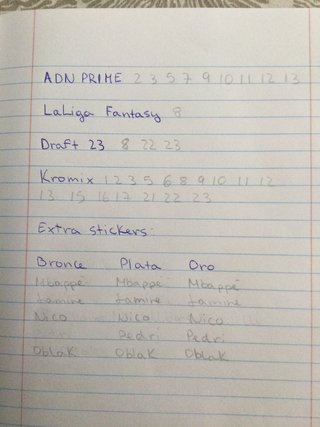 ADN PRIME 2 3 5 7 9 10 11 12 13
LaLiga Fantasy 8
Draft 23 8 22 23
Kromix 1 2 3 5 6 8 9 10 11 12
13 15 16 17 21 22 23
Extra stickers:
Bronce Plata Oro
Mbappé Mbappé Mbappé
Lamine Lamine Lamine
Nico Nico Nico
Pedri Pedri
Oblak Oblak Oblak